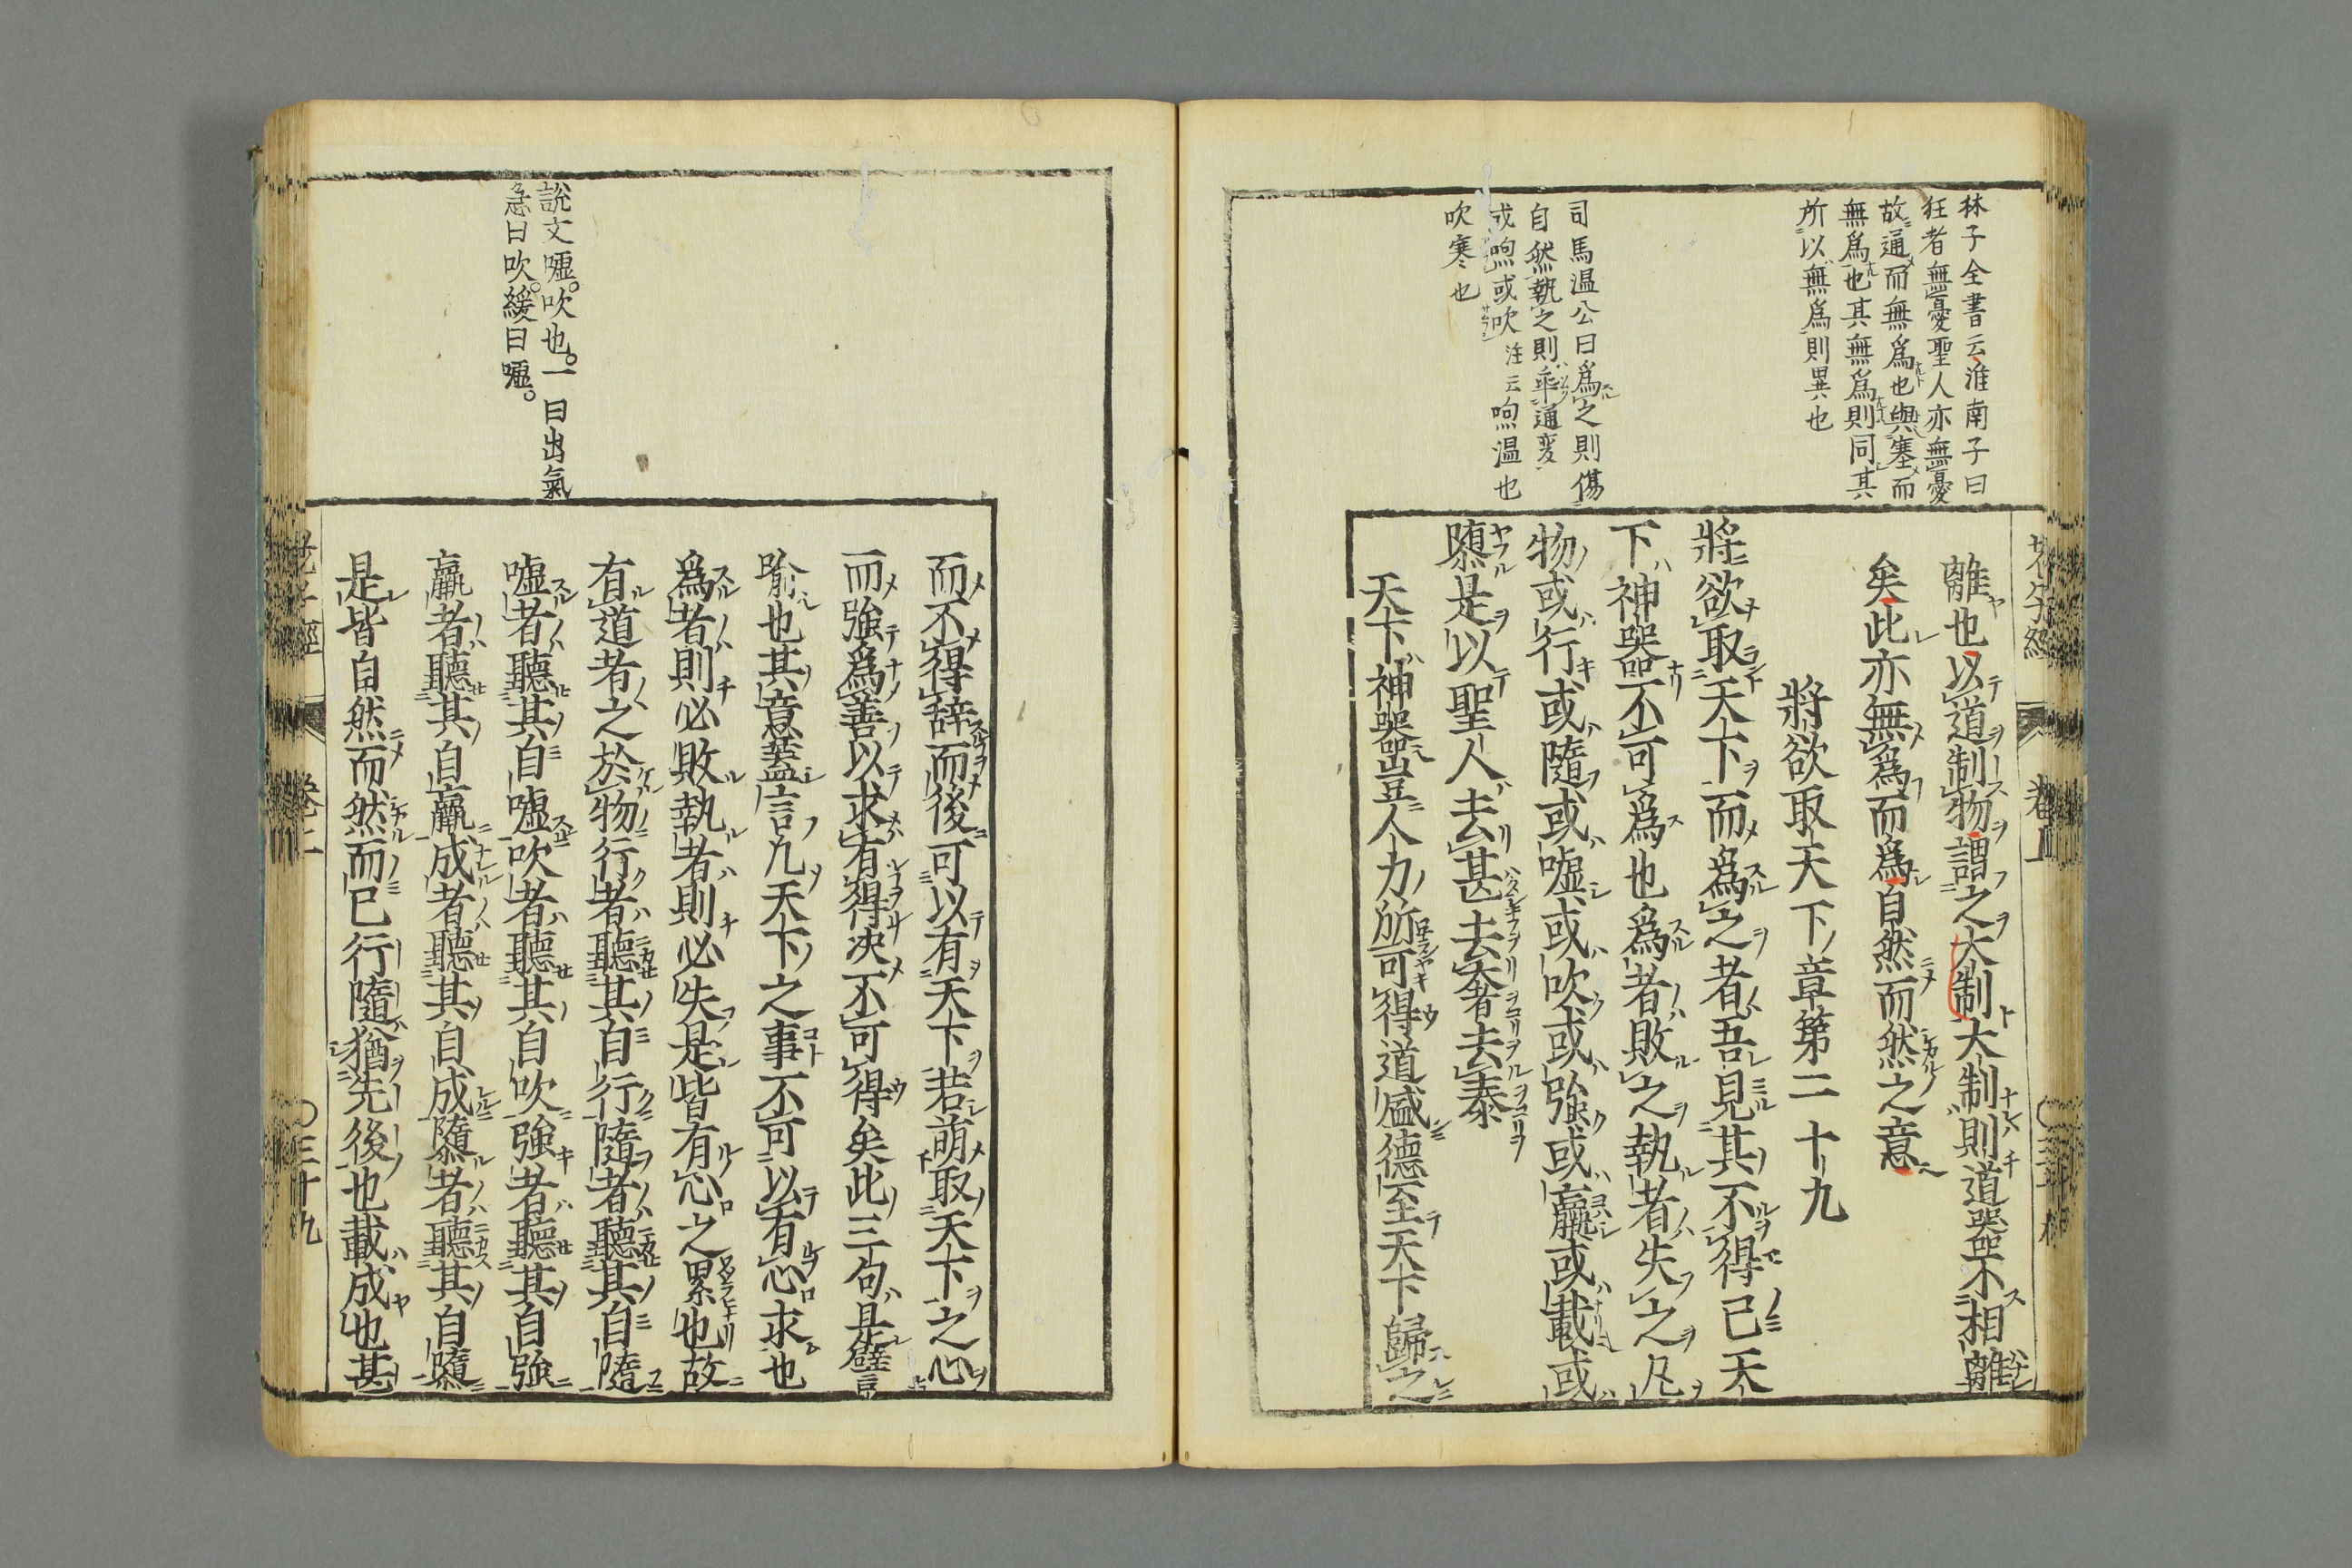 林子全書云淮南子曰
狂者無憂聖人亦無憂
故通而無爲也與塞而
無爲也其無爲則同其
所以無爲則異也
司馬温公曰爲之則傷
自然執之則乖通変
或呴或吹注云呴温也
吹寒也
離也以道制物謂之大制大制則道器不相離
矣此亦無爲而爲自然而然之意
將欲取天下章第二十九
將欲取天下而爲之者吾見其不得已天
下神器不可爲也爲者敗之執者失之凡
物或行或隨或噓或吹或強或羸或載或
隳是以聖人去甚去奢去泰
天下神器豈人力所可得道盛德至天下歸之
說文噓。吹也。一曰出氣
急曰吹。緩曰噓。
而不得辭而後可以有天下若萌取天下之心
而強爲善以求有得決不可得矣此三句是譬
喻也其意蓋言凢天下之事不可以有心求也
爲者則必敗執者則必失是皆有心之累也故
有道者之於物行者聽其自行隨者聽其自隨
噓者聽其自噓吹者聽其自吹強者聽其自強
羸者聽其自羸成者聽其自成隳者聽其自隳
是皆自然而然而已行隨猶先後也載成也甚
老子經 卷二 〇三十九